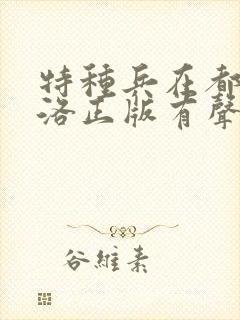 特種兵在都
洛正版有聲
谷維素